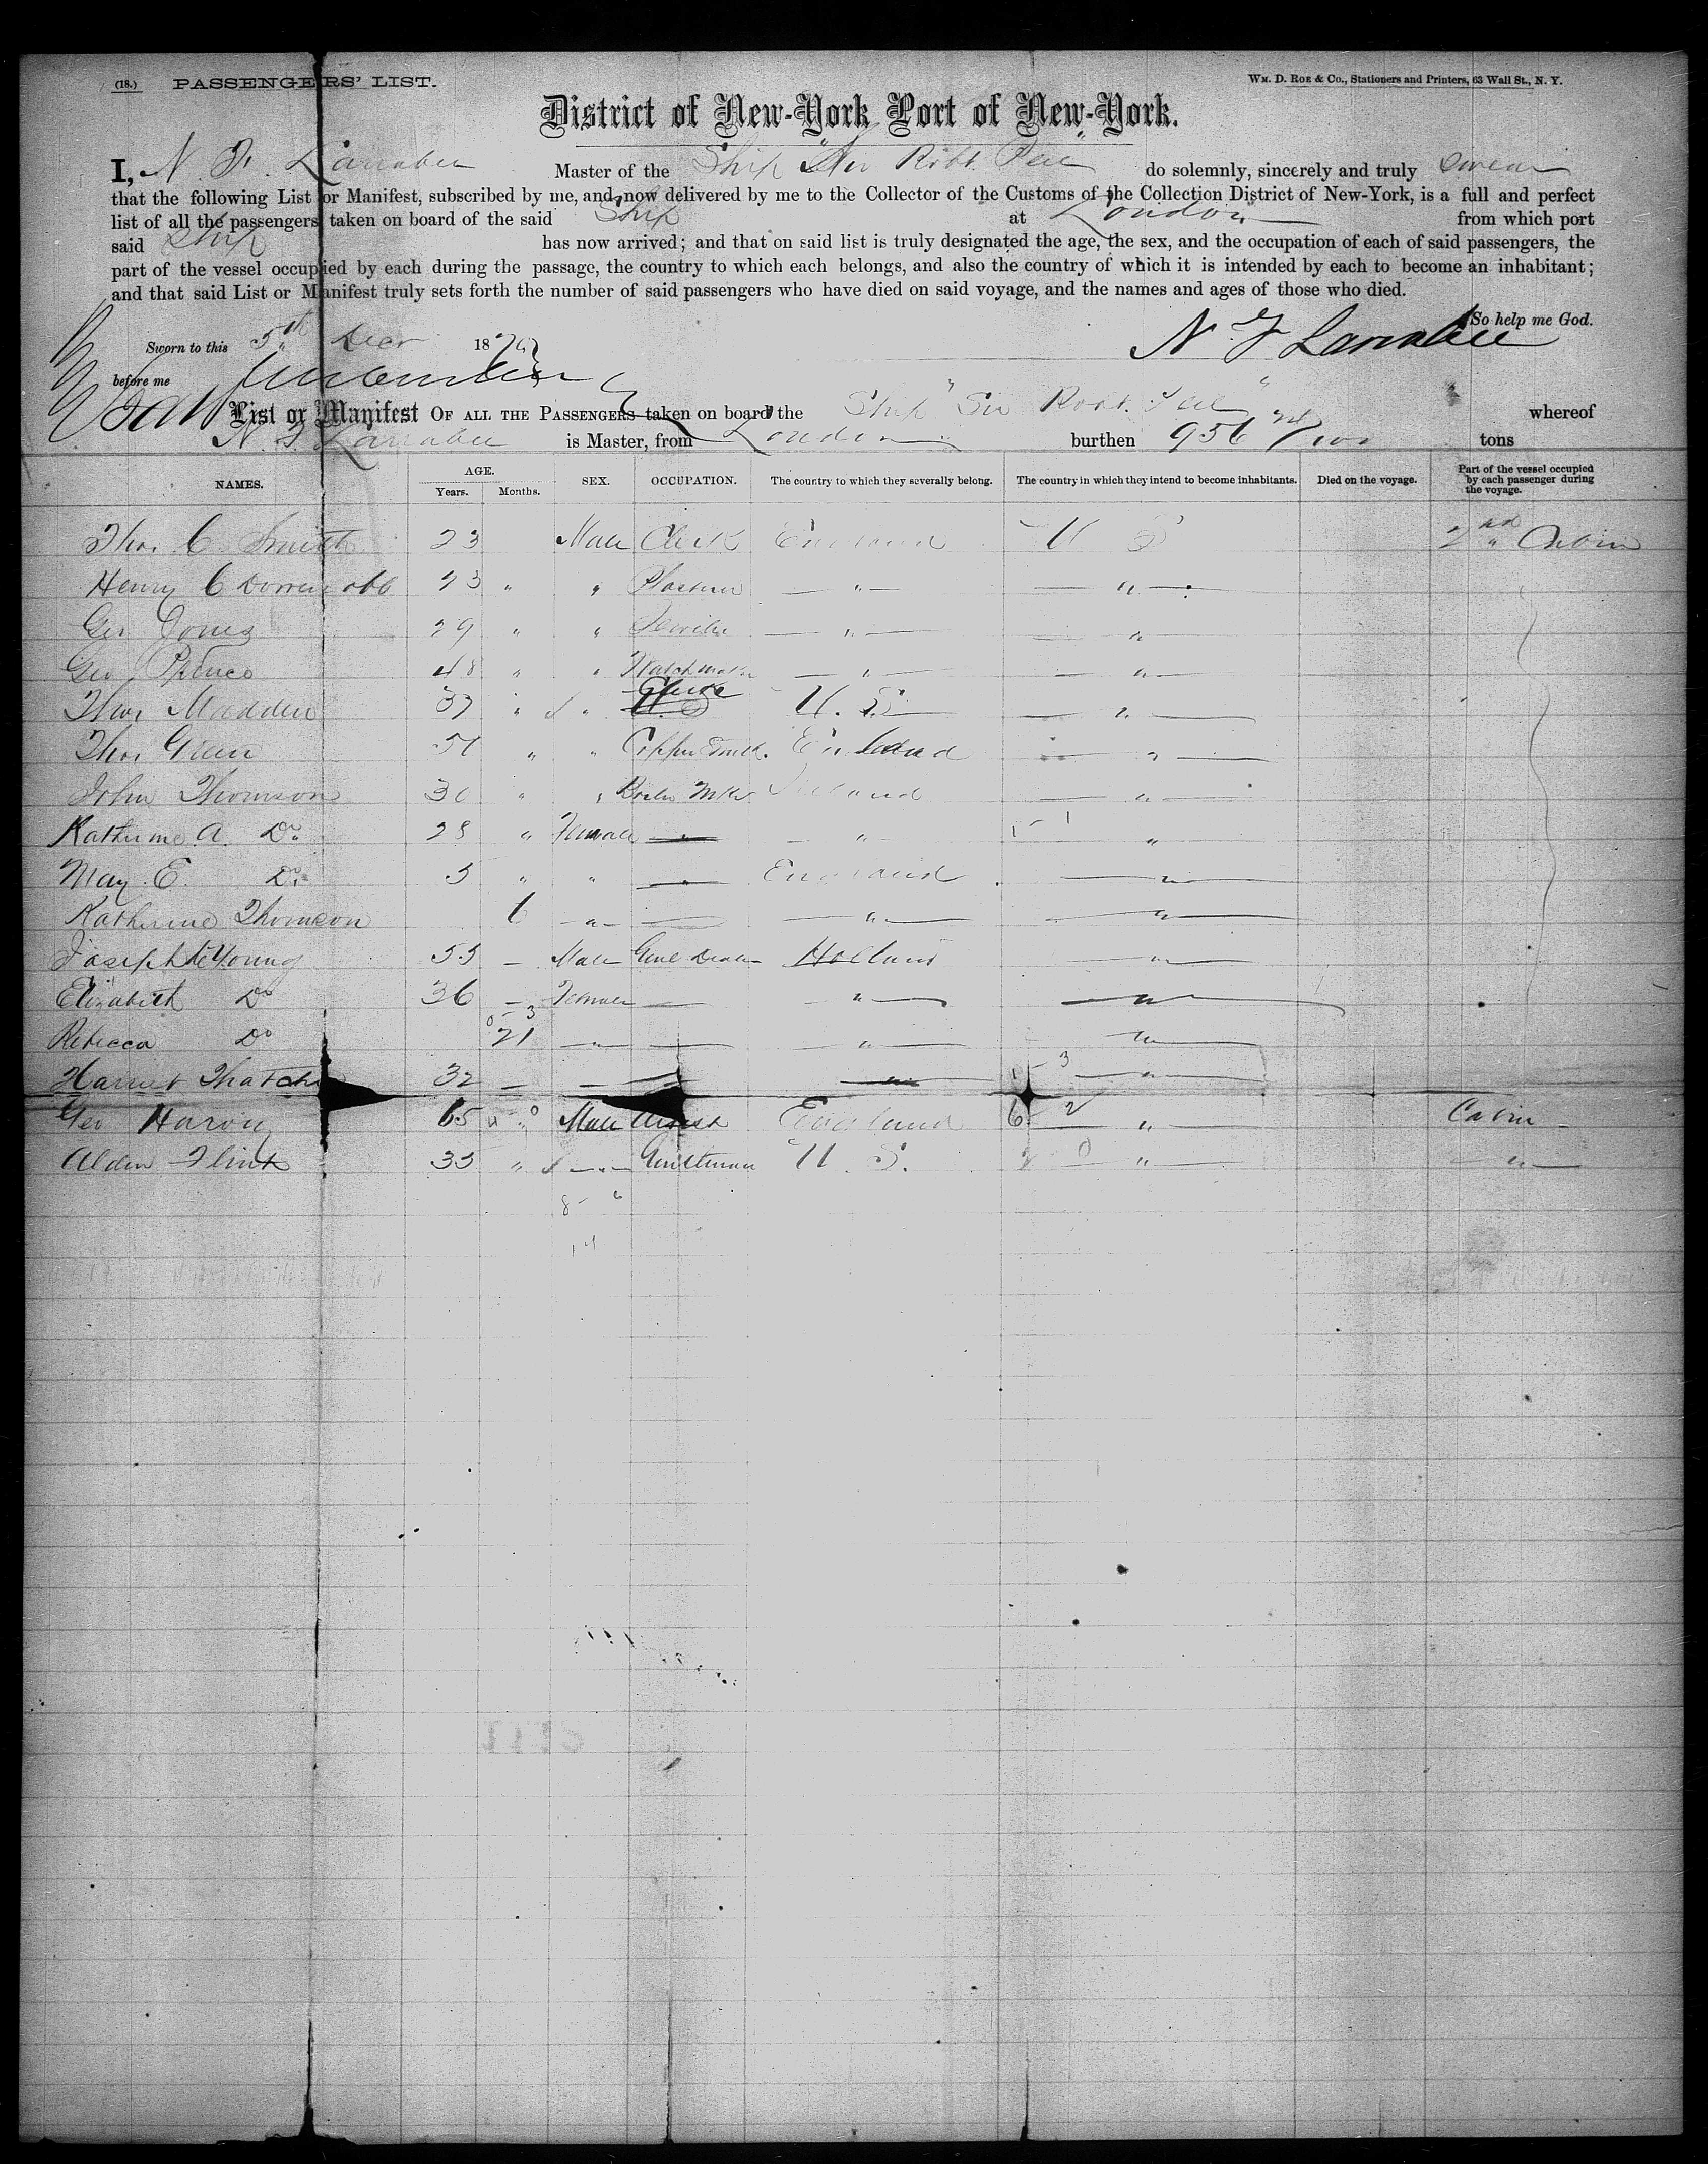 (18.) PASSENGERS' LIST.
WM. D. ROE & CO., Stationers and Printers, 63 Wall St., N. Y.
District of New-York Port of New-York.
I, N. F. Larrabee Master of the Ship "Sir Robt. Peel" do solemnly, sincerely and truly swear
that the following List or Manifest, subscribed by me, and now delivered by me to the Collector of the Customs of the Collection District of New-York, is a full and perfect
list of all the passengers taken on board of the said Ship at London from which port
said Ship has now arrived; and that on said list is truly designated the age, the sex, and the occupation of each of said passengers, the
part of the vessel occupied by each during the passage, the country to which each belongs, and also the country of which it is intended by each to become an inhabitant;
and that said List or Manifest truly sets forth the number of said passengers who have died on said voyage, and the names and ages of those who died.
So help me God.
Sworn to this 5th Decr 187
N F Larrabee
before me
List or Manifest OF ALL THE PASSENGERS taken on board the Ship "Sir Robt. Peel" whereof
N. F. Larrabee is Master, from London burthen 956 /100 tons
NAMES. AGE. Years. Months. SEX. OCCUPATION. The country to which they severally belong. The country in which they intend to become inhabitants. Died on the voyage. Part of the vessel occupied by each passenger during the voyage.
Thos. C. Smith 23 Male Clerk England U S 2nd Cabin
Henry C 23 " " Plasterer " "
Geo Jones 29 " " " "
Geo 48 " " Watchmaker " "
Thos Madden 37 " " U. S "
Thos Green 51 " " Coppersmith England "
John Thomson 30 " " Boiler Mkr Ireland "
Katherine A. Do 28 " Female " " "
May E. Do 5 " " " England "
Katherine Thomson 6 " " "
Joseph deYoung 55 - Male Genl Dealer Holland "
Elizabeth Do 36 - Female - " "
Rebecca Do 21 " - " "
Harriet Thatch 32 - - - " "
Geo Harvey 65 " Male Artist England " Cabin
Alden Flint 33 " " Gentleman U. S. " "